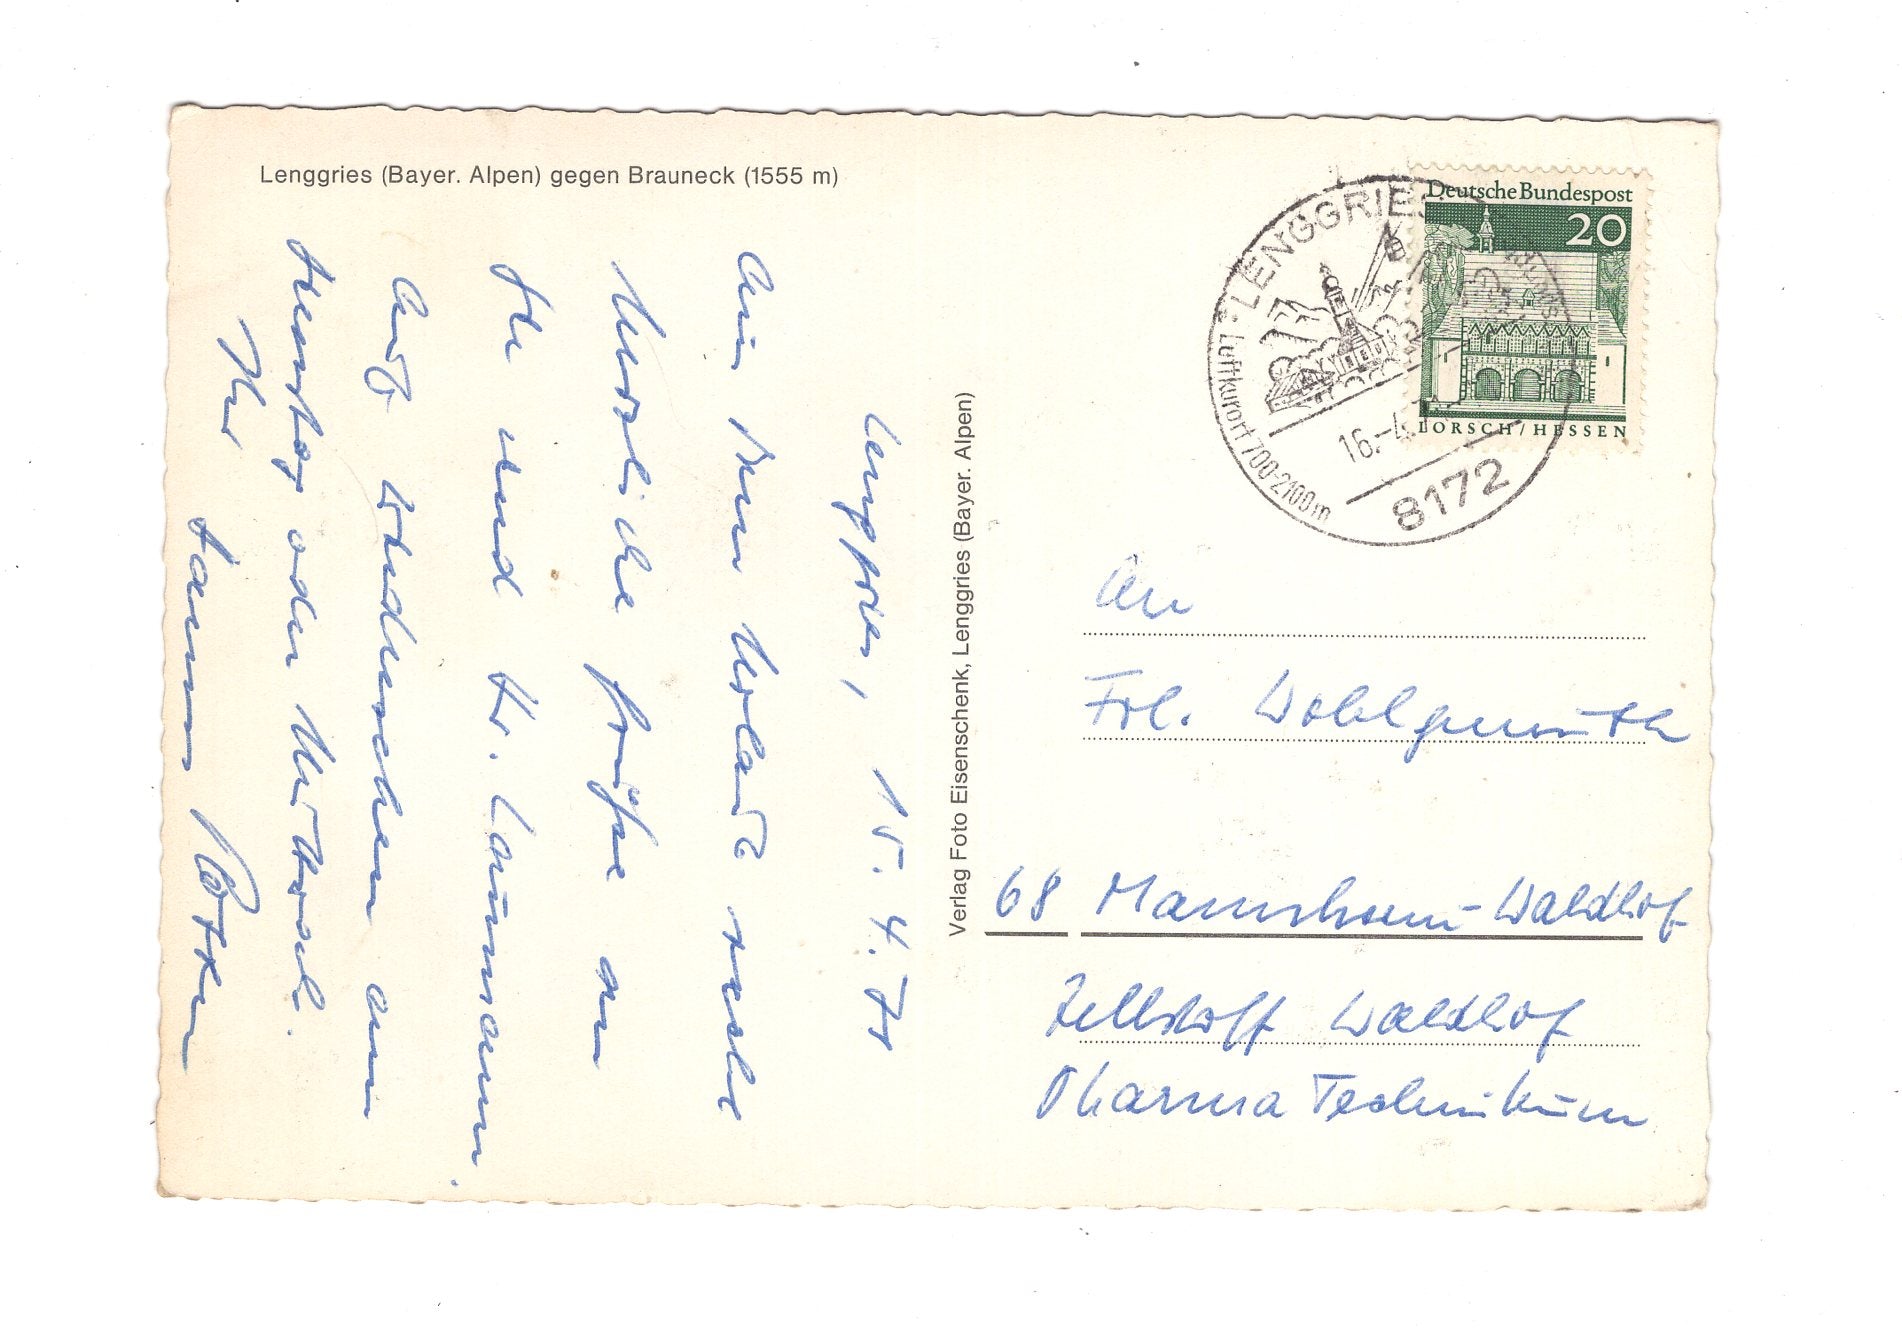 Lenggries (Bayer. Alpen) gegen Brauneck (1555 m)
Lenggries, 15. 4. 70
Aus dem Urlaub recht
herzliche Grüße an
Sie und Hr. Laumann.
Auf Wiedersehen am
Dienstag oder Mittwoch.
Ihr
Verlag Foto Eisenschenk, Lenggries (Bayer. Alpen)
LENGGRIES
Luftkurort 700-2100m
16.-4.
8172
Deutsche Bundespost
20
LORSCH/HESSEN
An
Frl. Wohlgemuth
68 Mannheim-Waldhof
Zellstoff Waldhof
Pharma Technikum